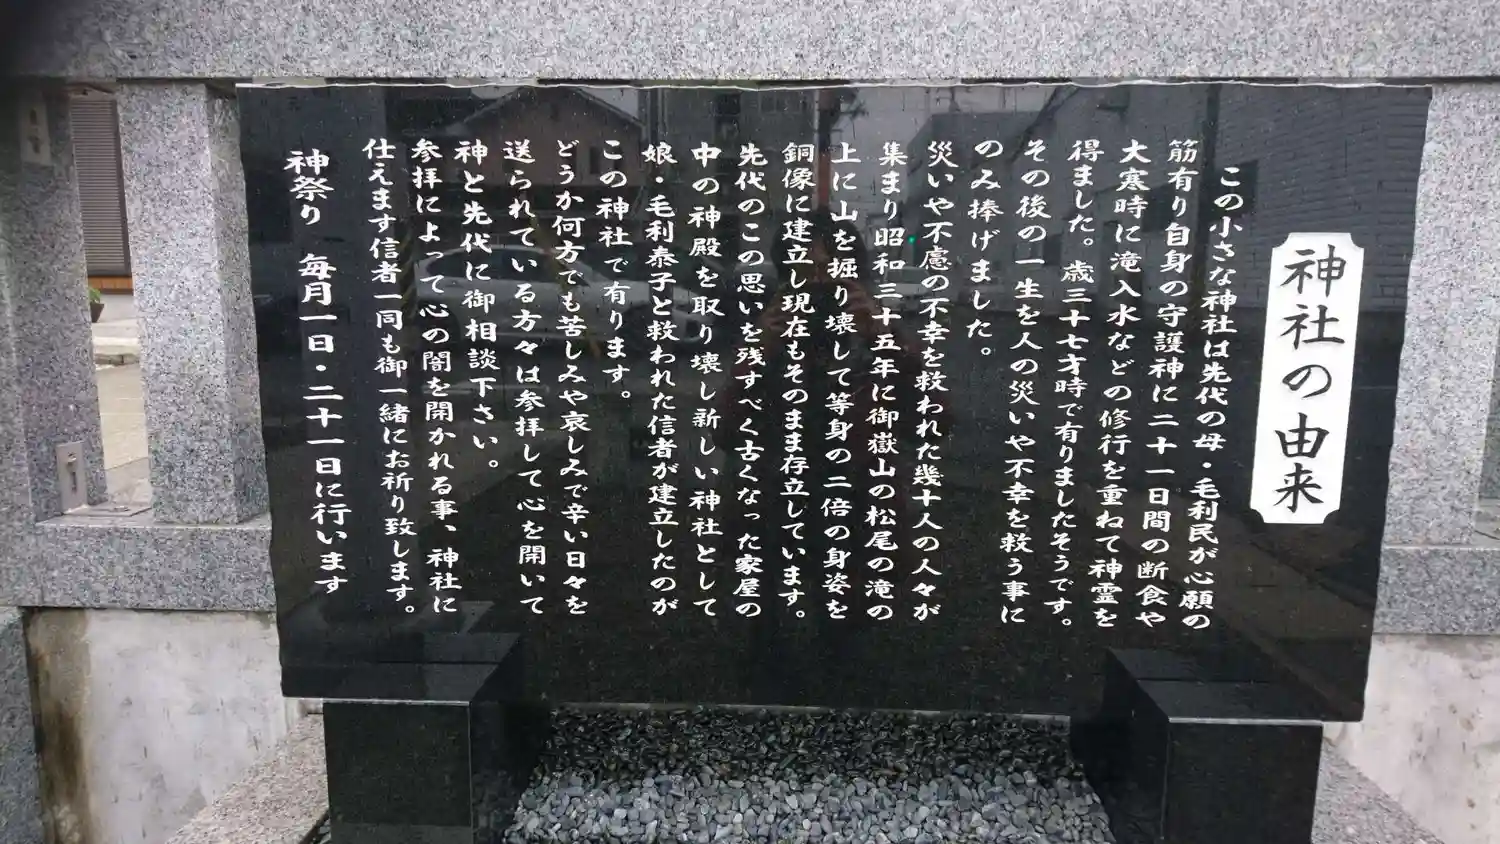 神社の由来
この小さな神社は先代の母・毛利民が心願の
筋有り自身の守護神に二十一日間の断食や
大寒時に滝入水などの修行を重ねて神霊を
得ました。歳三十七才時で有りましたそうです。
その後の一生を人の災いや不幸を救う事に
のみ捧げました。
災いや不慮の不幸を救われた幾十人の人々が
集まり昭和三十五年に御嶽山の松尾の滝の
上に山を掘り壊して等身の二倍の身姿を
銅像に建立し現在もそのまま存立しています。
先代のこの思いを残すべく古くなった家屋の
中の神殿を取り壊し新しい神社として
娘・毛利泰子と救われた信者が建立したのが
この神社で有ります。
どうか何方でも苦しみや哀しみで辛い日々を
送られている方々は参拝して心を開いて
神と先代に御相談下さい。
参拝によって心の闇を開かれる事、神社に
仕えます信者一同も御一緒にお祈り致します。
神祭り 毎月一日・二十一日に行います